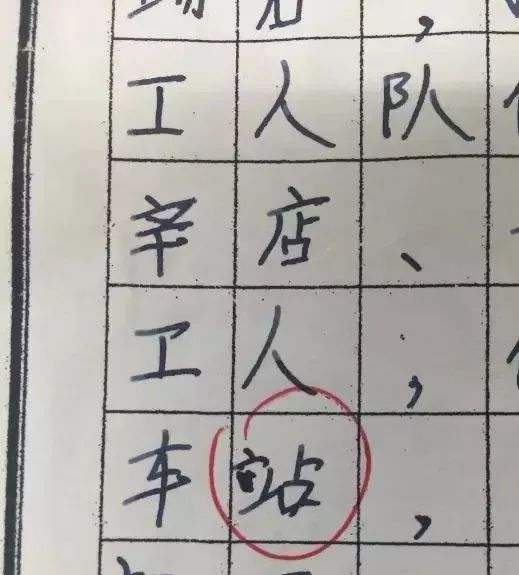 工人队
辛店、
工人，
车站，